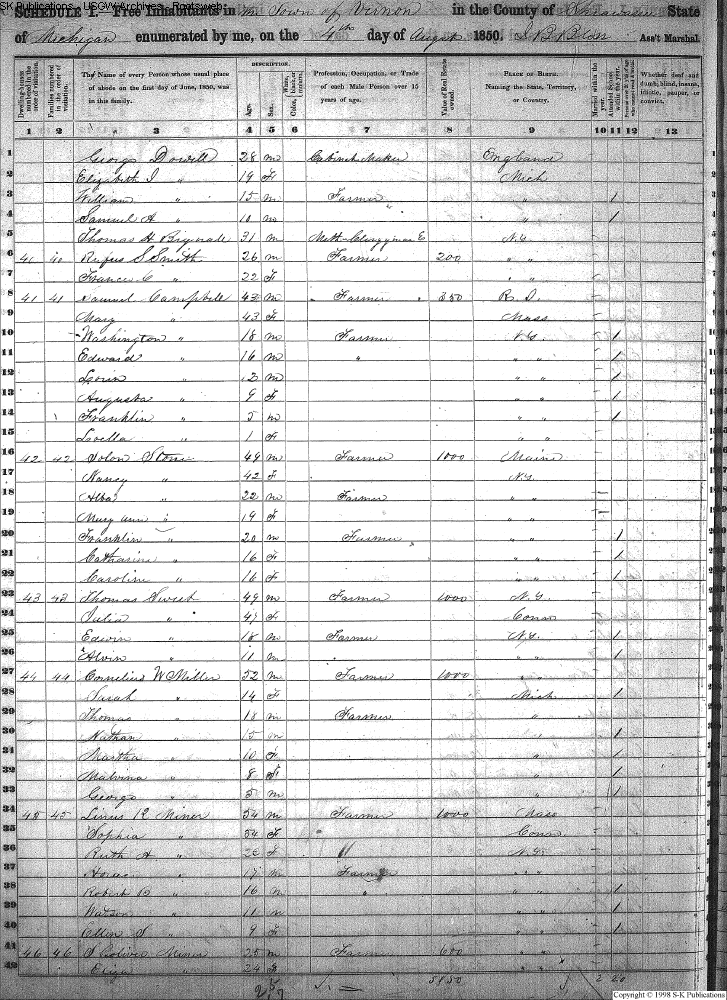 SK Publications - USGW Archives - Rootsweb
SCHEDULE I. Free Inhabitants in the Town of Vernon in the County of Shiawassee State
of Michigan enumerated by me, on the 4th day of August 1850. Ass't Marshal.
DESCRIPTION.
Dwelling-houses numbered in the order of visitation. Families numbered in the order of visitation. The Name of every Person whose usual place of abode on the first day of June, 1850, was in this family. Age. Sex. Color, Profession, Occupation, or Trade of each Male Person over 15 years of age. Value of Real Estate owned. PLACE OF BIRTH. Naming the State, Territory, or Country. Married within the year. Attended School within the year. Whether deaf and dumb, blind, insane, idiotic, pauper, or convict.
1 2 3 4 5 6 7 8 9 10 11 12 13
1 George Dowell 28 m Cabinet Maker England
2 Elizabeth J " 19 F Mich
3 William " 15 m Farmer " 1
4 Samuel A " 10 m " 1
5 Thomas H 31 m Meth. Clergyman E N.Y.
6 40 40 Rufus S Smith 26 m Farmer 200 " "
7 Frances C " 22 F " "
8 41 41 Samuel Campbell m Farmer 350 R.I.
9 Mary " 43 F Mass
10 Washington " 18 m Farmer N.Y. 1
11 Edward " 16 m " " " 1
12 Lorin " m " " 1
13 Augusta " 9 F " " 1
14 Franklin " 5 m " 1
15 Loella " 1 F " "
16 42 42 Solon Stone 49 m Farmer 1000 Maine
17 Nancy " 42 F N.Y.
18 Alba " 22 m Farmer " "
19 Mary Ann " 19 F " "
20 Franklin " 20 m Farmer " " 1
21 Catharine " 16 F " " 1
22 Caroline " 16 F " " 1
23 43 43 Thomas Sweet 49 m Farmer 1000 N.Y.
24 Julia " 47 F Conn
25 Edwin " 18 m Farmer N.Y. 1
26 Alvin " 11 m " " 1
27 44 44 Cornelius W Miller 52 m Farmer 1000 " "
28 Sarah " 14 F Mich 1
29 Thomas " 18 m Farmer "
30 Nathan " 15 m " 1
31 Martha " 10 F " 1
32 Malvina " 8 F " 1
33 George " 5 m " 1
34 45 45 Linus R Miner 54 m Farmer 1000 Mass
35 Sophia " 54 F Conn
36 Ruth A " F N.Y.
37 " 17 m Farmer " "
38 Robert B " 16 m " " 1
39 Watson " 11 m " 1
40 Ellen S " 9 F " 1
41 46 46 Miner 25 m Farmer 600 " "
42 Eliza " 24 F " "
5850
Copyright © 1998 S-K Publications